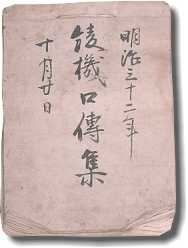 明治三十二年
綾機口傳集
十月廿日